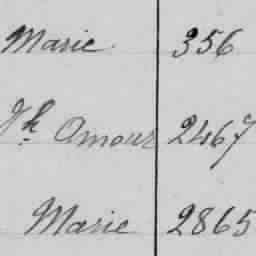 Marie 356
Jh Amour 2467
Marie 2865